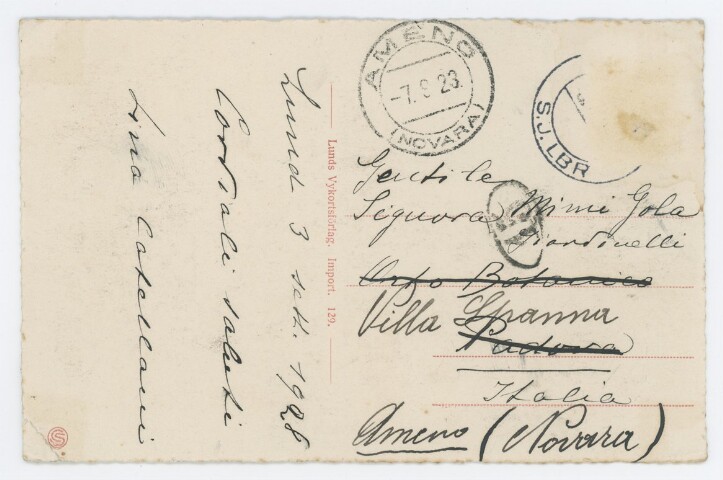 Lund 3 sett. 1928
Cordiali saluti
Lina Castellani
Lunds Vykortsförlag. Import. 129.
AMENO
-7.9 23.
(NOVARA)
S.J. LBR
Gentile
Signora Mimi Gola
Giardinelli
Orto Botanico
Villa Spanna
Padova
Italia
Ameno (Novara)